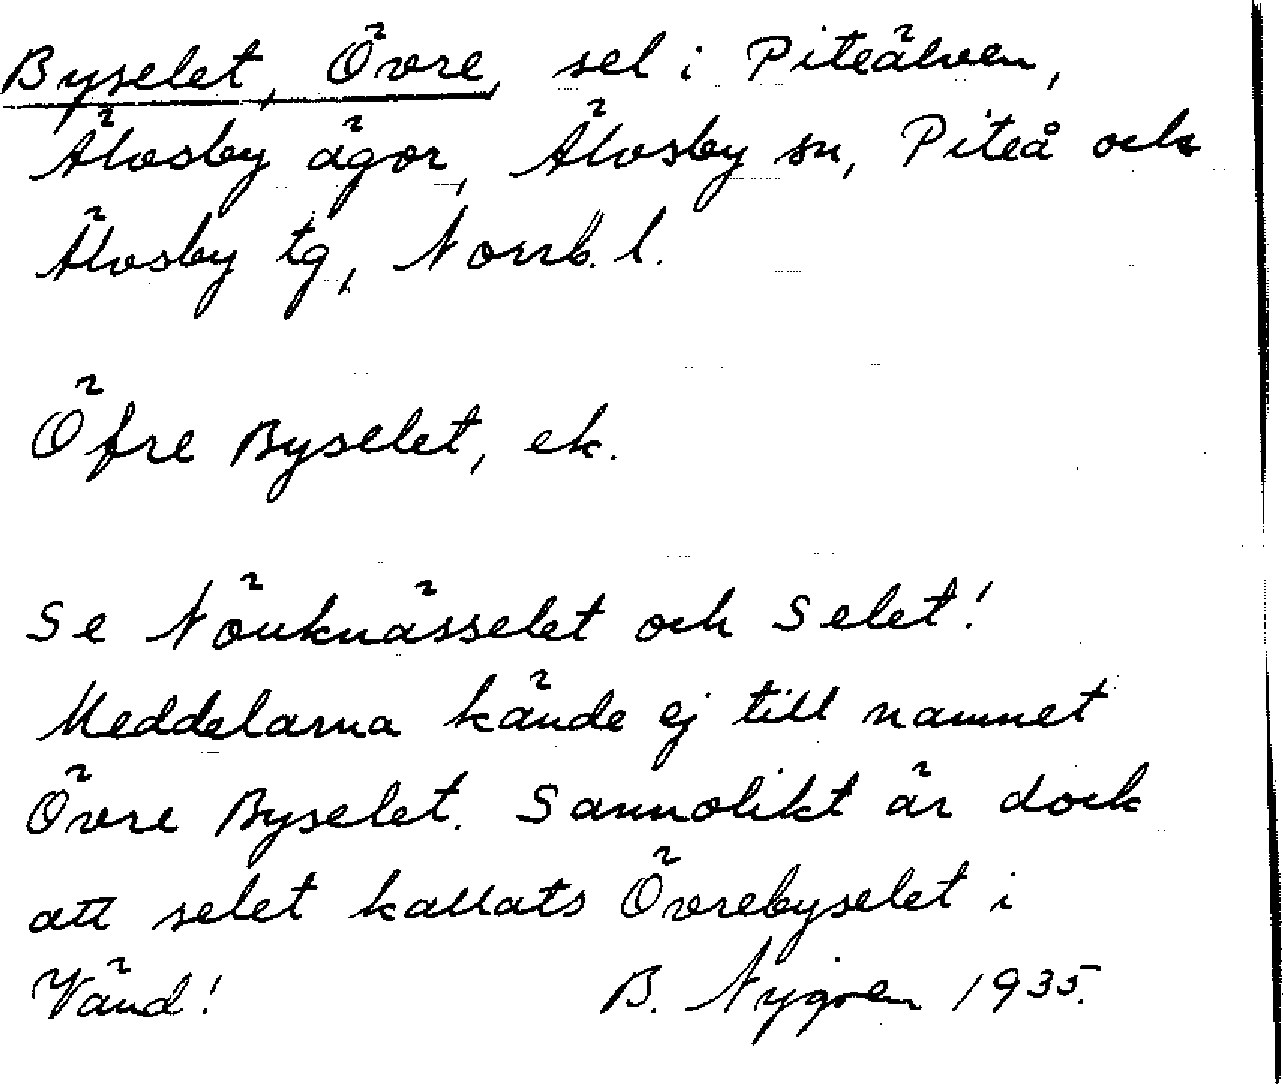 Byselet, Övre, sel i Piteälven,
Älvsby ägor, Älvsby sn, Piteå och
Älvsby tg, Norrb. l.
Öfre Byselet, ek.
Se Nöuknässelet och Selet!
Meddelarna kände ej till namnet
Övre Byselet. Sannolikt är dock
att selet kallats Övrebyselet i
Vänd! B. Nygren 1935.